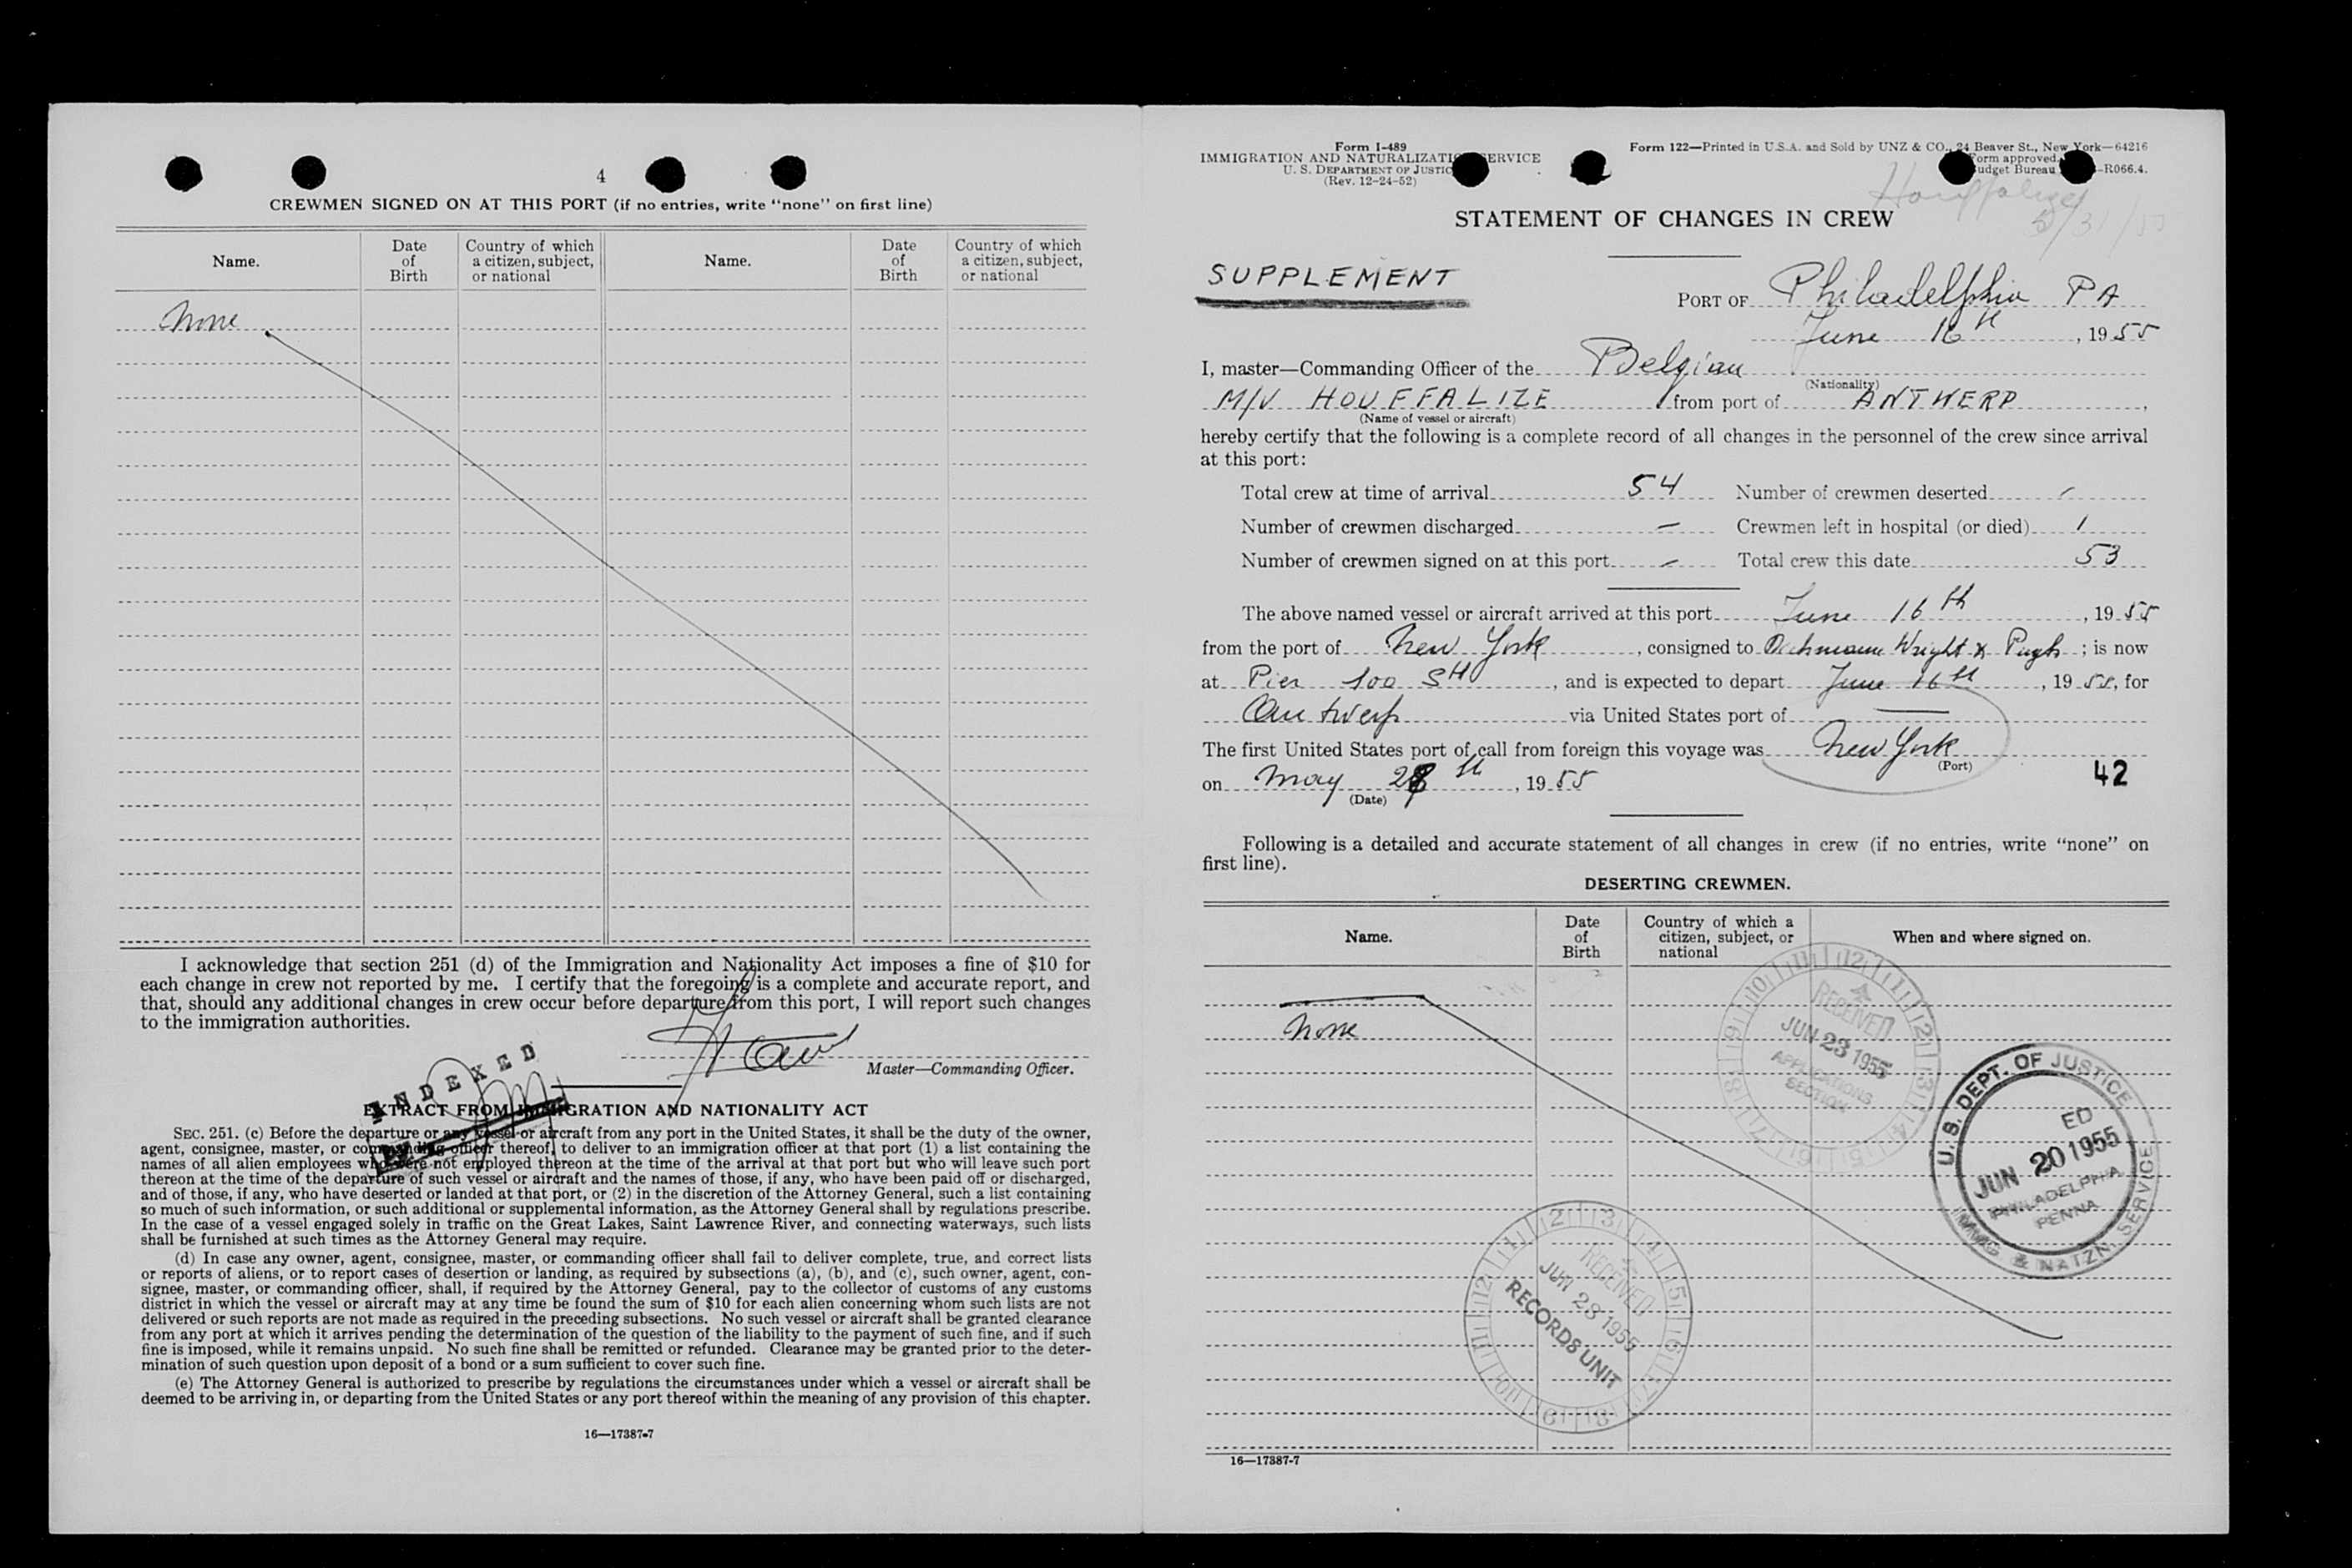 4
CREWMEN SIGNED ON AT THIS PORT (if no entries, write “none” on first line)
Name. Date of Birth Country of which a citizen, subject, or national Name. Date of Birth Country of which a citizen, subject, or national
None
I acknowledge that section 251 (d) of the Immigration and Nationality Act imposes a fine of $10 for
each change in crew not reported by me. I certify that the foregoing is a complete and accurate report, and
that, should any additional changes in crew occur before departure from this port, I will report such changes
to the immigration authorities.
Master—Commanding Officer.
INDEXED
EXTRACT FROM IMMIGRATION AND NATIONALITY ACT
SEC. 251. (c) Before the departure or any vessel or aircraft from any port in the United States, it shall be the duty of the owner,
agent, consignee, master, or commanding officer thereof, to deliver to an immigration officer at that port (1) a list containing the
names of all alien employees who were not employed thereon at the time of the arrival at that port but who will leave such port
thereon at the time of the departure of such vessel or aircraft and the names of those, if any, who have been paid off or discharged,
and of those, if any, who have deserted or landed at that port, or (2) in the discretion of the Attorney General, such a list containing
so much of such information, or such additional or supplemental information, as the Attorney General shall by regulations prescribe.
In the case of a vessel engaged solely in traffic on the Great Lakes, Saint Lawrence River, and connecting waterways, such lists
shall be furnished at such times as the Attorney General may require.
(d) In case any owner, agent, consignee, master, or commanding officer shall fail to deliver complete, true, and correct lists
or reports of aliens, or to report cases of desertion or landing, as required by subsections (a), (b), and (c), such owner, agent, con-
signee, master, or commanding officer, shall, if required by the Attorney General, pay to the collector of customs of any customs
district in which the vessel or aircraft may at any time be found the sum of $10 for each alien concerning whom such lists are not
delivered or such reports are not made as required in the preceding subsections. No such vessel or aircraft shall be granted clearance
from any port at which it arrives pending the determination of the question of the liability to the payment of such fine, and if such
fine is imposed, while it remains unpaid. No such fine shall be remitted or refunded. Clearance may be granted prior to the deter-
mination of such question upon deposit of a bond or a sum sufficient to cover such fine.
(e) The Attorney General is authorized to prescribe by regulations the circumstances under which a vessel or aircraft shall be
deemed to be arriving in, or departing from the United States or any port thereof within the meaning of any provision of this chapter.
16—17387-7
Form I-489
IMMIGRATION AND NATURALIZATION SERVICE
U. S. DEPARTMENT OF JUSTICE
(Rev. 12-24-52)
Form 122—Printed in U.S.A. and Sold by UNZ & CO., 24 Beaver St., New York—64216
Form approved.
Budget Bureau -R066.4.
Houffalize
5/31/55
STATEMENT OF CHANGES IN CREW
SUPPLEMENT
PORT OF Philadelphia PA
June 16th, 1955
I, master—Commanding Officer of the Belgian
(Nationality)
M/V HOUFFALIZE from port of ANTWERP,
(Name of vessel or aircraft)
hereby certify that the following is a complete record of all changes in the personnel of the crew since arrival
at this port:
Total crew at time of arrival 54 Number of crewmen deserted -
Number of crewmen discharged — Crewmen left in hospital (or died) 1
Number of crewmen signed on at this port — Total crew this date 53
The above named vessel or aircraft arrived at this port June 16th, 1955
from the port of New York, consigned to Wright & Pugh; is now
at Pier 100 SH, and is expected to depart June 16th, 1955, for
Antwerp via United States port of —
The first United States port of call from foreign this voyage was New York
(Port)
on May 28th, 1955
(Date)
42
Following is a detailed and accurate statement of all changes in crew (if no entries, write “none” on
first line).
DESERTING CREWMEN.
Name. Date of Birth Country of which a citizen, subject, or national When and where signed on.
None
RECEIVED
JUN 23 1955
APPLICATIONS
SECTION
U. S. DEPT. OF JUSTICE
ED
JUN 20 1955
PHILADELPHIA
PENNA
IMMIG & NATZN. SERVICE
RECEIVED
JUN 23 1955
RECORDS UNIT
16—17387-7